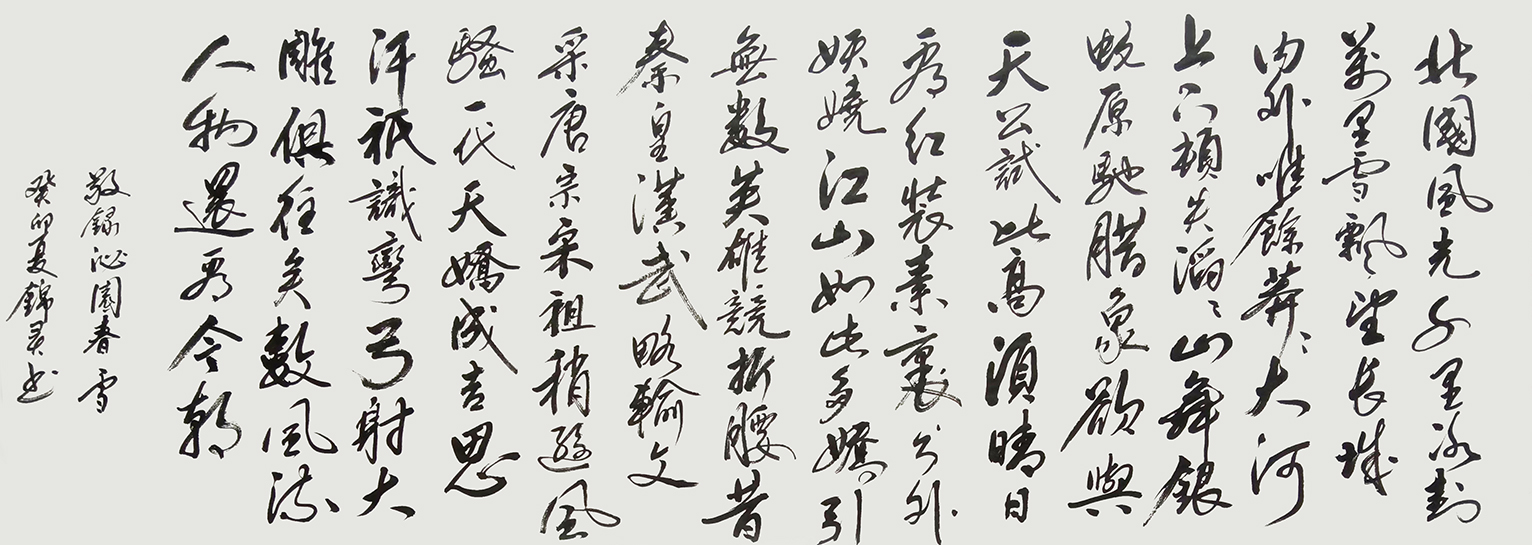 北國風光千里冰封
萬里雪飄望长城
内外唯餘莽〻大河
上下頓失滔〻山舞銀
蛇原馳腊象欲與
天公試比高須晴日
看红裝素裹分外
妖嬈江山如此多嬌引
無数英雄競折腰昔
秦皇漢武略輸文
采唐宗宋祖稍遜風
騷一代天嬌成吉思
汗祇識彎弓射大
雕俱往矣數風流
人物還看今朝
敬録沁園春雪
癸卯夏錦灵书